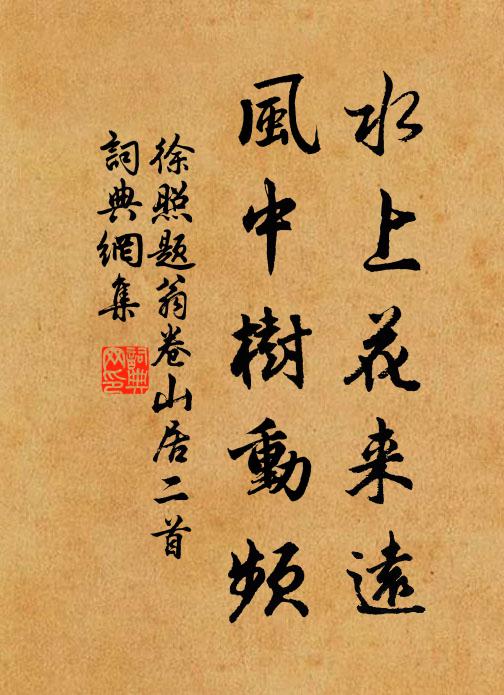 水上花来遠
風中樹動頻
徐照題翁卷山居二首
詞典網集
詞典網印